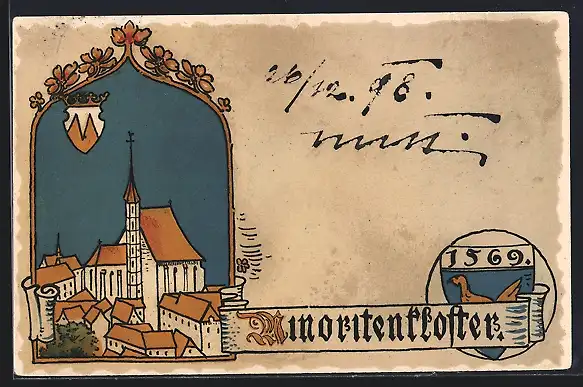 26/12. 98.
1569.
Minoritenkloster.